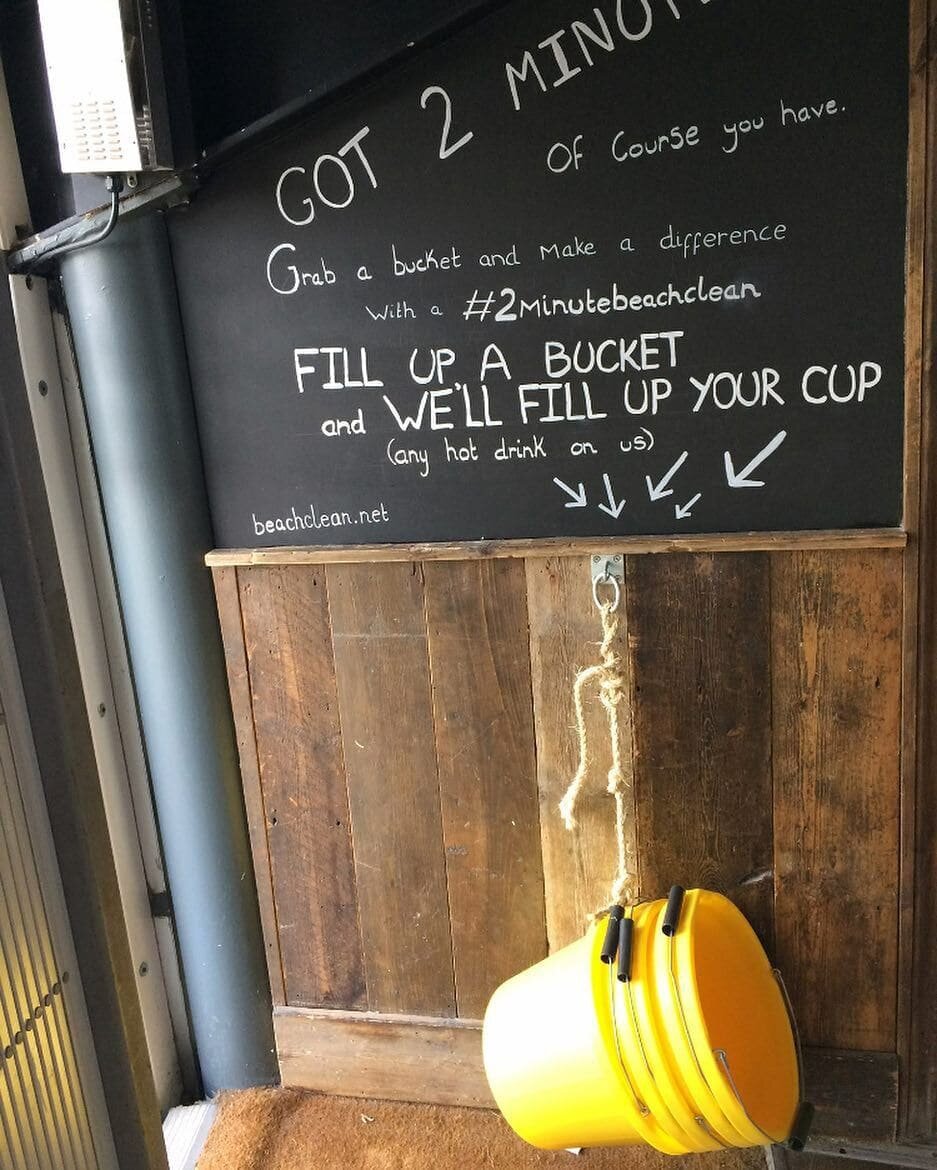 GOT 2 MINUT
Of Course you have.
Grab a bucket and make a difference
with a #2minutebeachclean
FILL UP A BUCKET
and WE'LL FILL UP YOUR CUP
(any hot drink on us)
beachclean.net